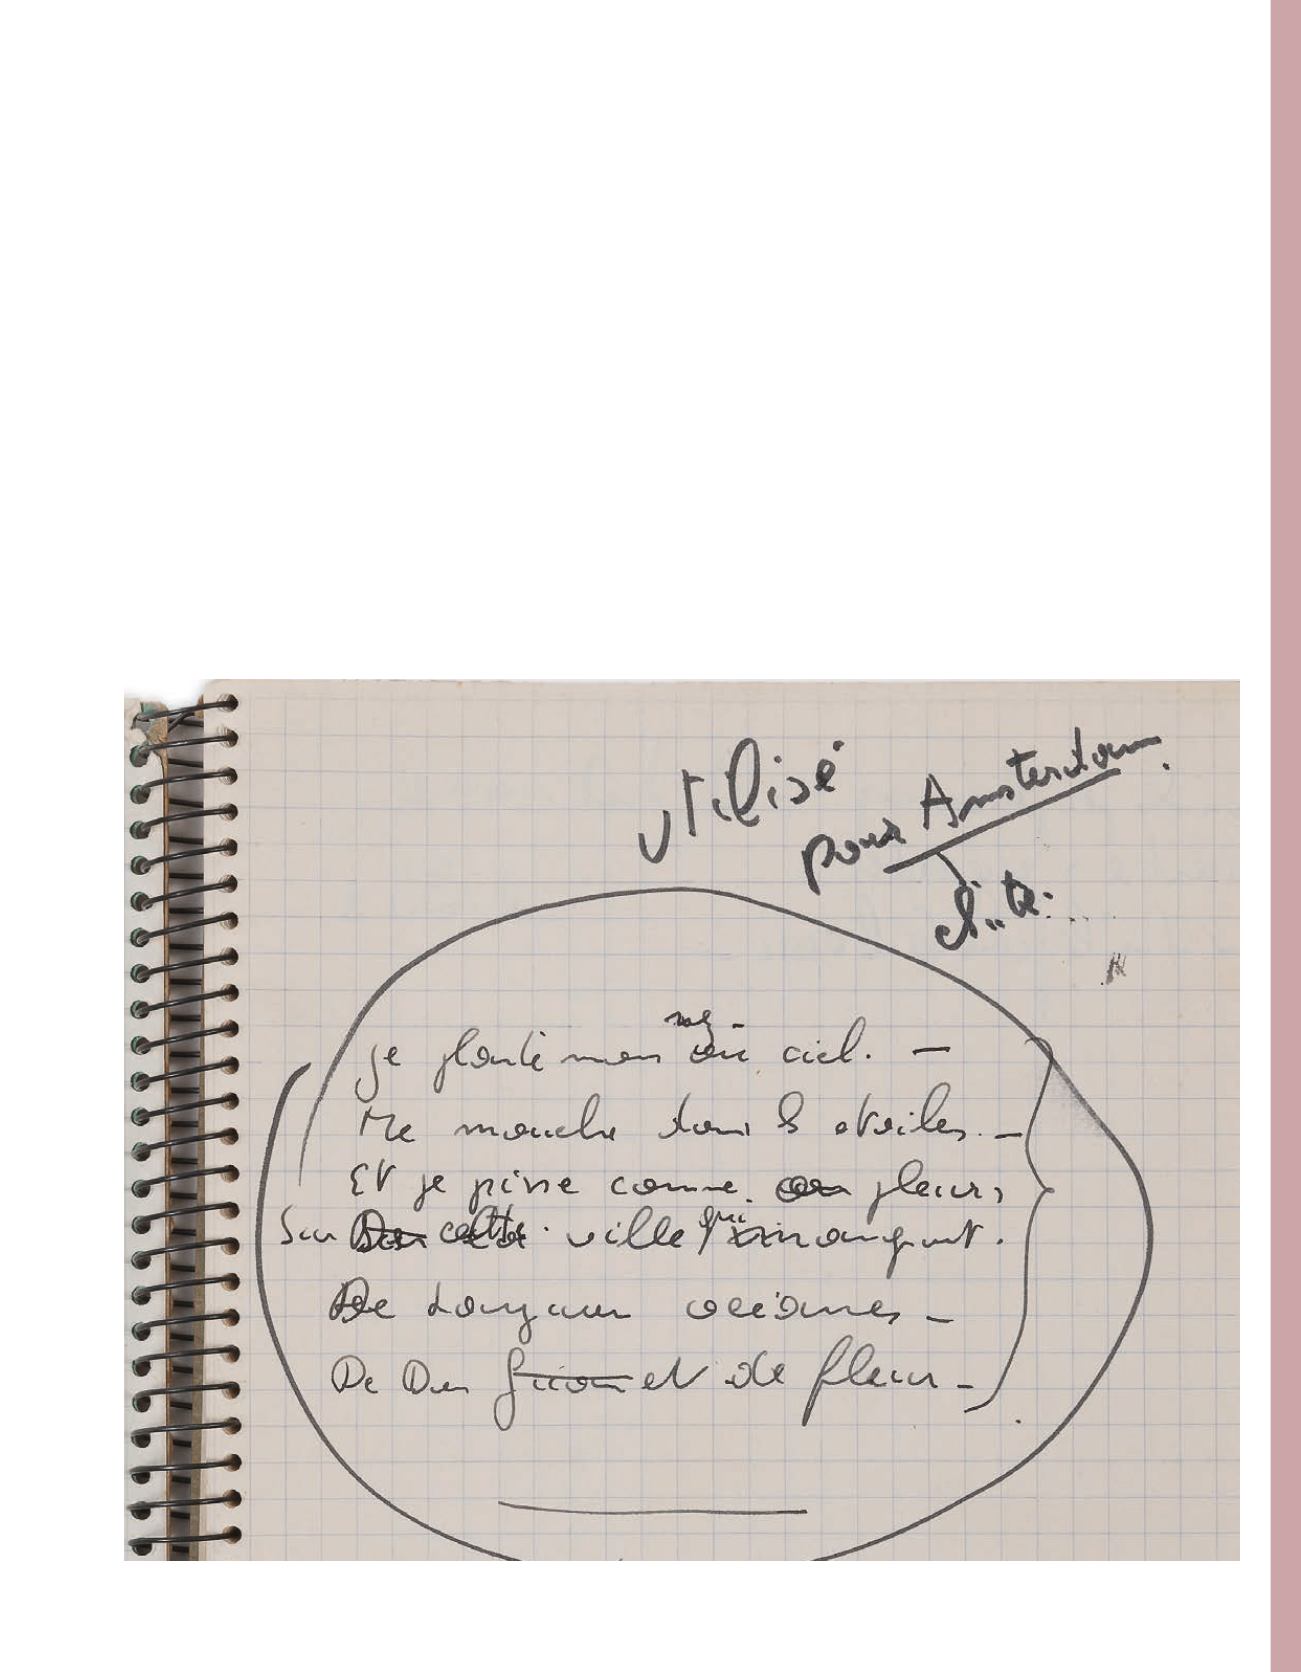 utilisé
pour Amsterdam.
nez
je plante mon au ciel. —
Me mouche dans les étoiles. —
Et je pisse comme je pleure,
Sur Des cette ville qui manquent.
De longueur océanes —
De Dieu et de fleur —